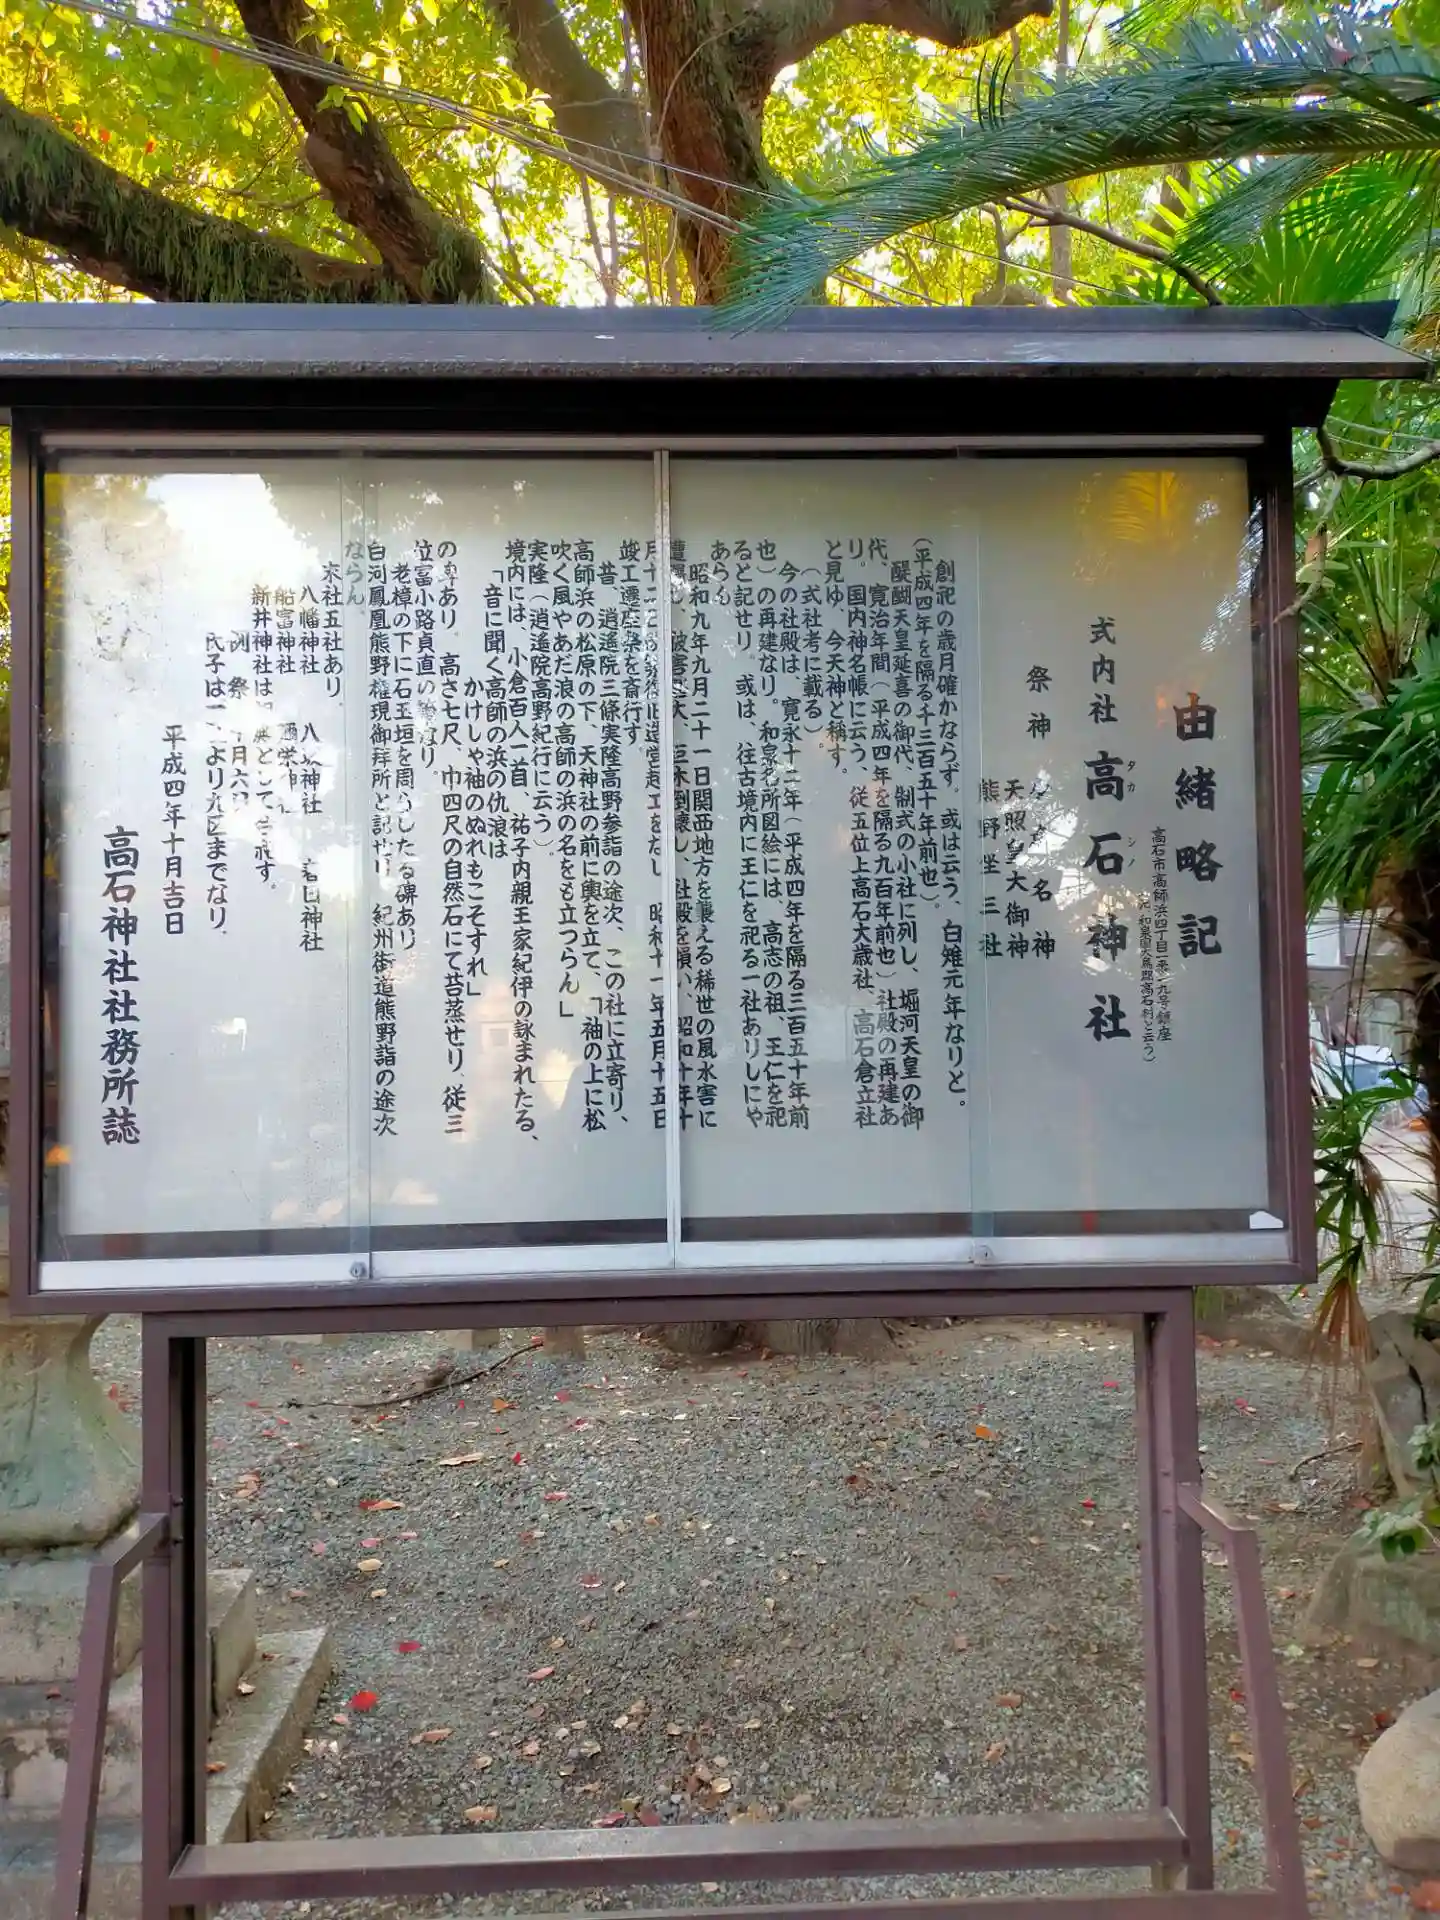 由緒略記
高石市高師浜四丁目一番一九号鎮座
(元、和泉国大鳥郡高石村と云う)
式内社 高石神社
タカ シノ
祭神 少彦名神
天照皇大御神
熊野坐三社
創祀の歳月確かならず。或は云う、白雉元年なりと。
(平成四年を隔る千三百五十年前也)。
醍醐天皇延喜の御代、制式の小社に列し、堀河天皇の御
代、寛治年間(平成四年を隔る九百年前也)社殿の再建あ
り。国内神名帳に云う、従五位上高石大歳社、高石倉立社
と見ゆ、今天神と稱す。
(式社考に載る)。
今の社殿は、寛永十二年(平成四年を隔る三百五十年前
也)の再建なり。和泉名所図絵には、高志の祖、王仁を祀
ると記せり。或は、往古境内に王仁を祀る一社ありしにや
あらん。
昭和九年九月二十一日関西地方を襲える稀世の風水害に
遭遇し、被害甚大、巨木倒壊し、社殿を損い、昭和十年十
月十二日造営起工をなし、昭和十一年五月十五日
竣工遷座祭を斎行す。
昔、逍遥院三條実隆高野参詣の途次、この社に立寄り、
高師浜の松原の下、天神社の前に輿を立て、「袖の上に松
吹く風やあだ浪の高師の浜の名をも立つらん」
実隆(逍遥院高野紀行に云う)。
境内には、小倉百人一首、祐子内親王家紀伊の詠まれたる、
「音に聞く高師の浜の仇浪は
かけじや袖のぬれもこそすれ」
の碑あり。高さ七尺、巾四尺の自然石にて苔蒸せり、従三
位富小路貞直の筆なり。
老樟の下に石玉垣を周らしたる碑あり、
白河鳳凰熊野権現御拜所と記せり、紀州街道熊野詣の途次
ならん。
末社五社あり。
八幡神社 八坂神社 春日神社
船富神社 神社
新井神社は相殿として合祀す。
例祭 十月六日
氏子は一区より九区までなり。
平成四年十月吉日
高石神社社務所誌